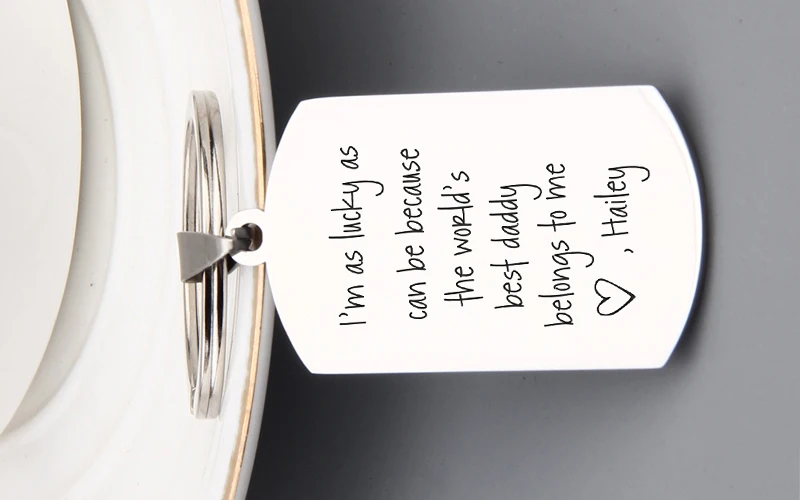 I'm as lucky as
can be because
the world's
best daddy
belongs to me
♡, Hailey